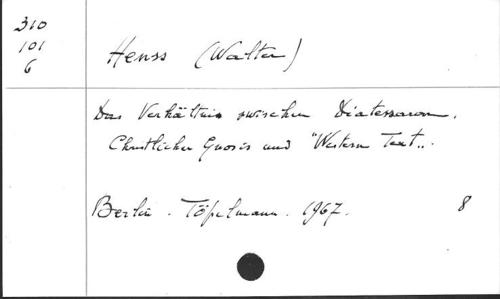 310
101
6
Henss (Walter)
Das Verhältnis zwischen Diatessaron,
Christlicher Gnosis und "Western Text..
Berlin. Töpelmann. 1967.
8